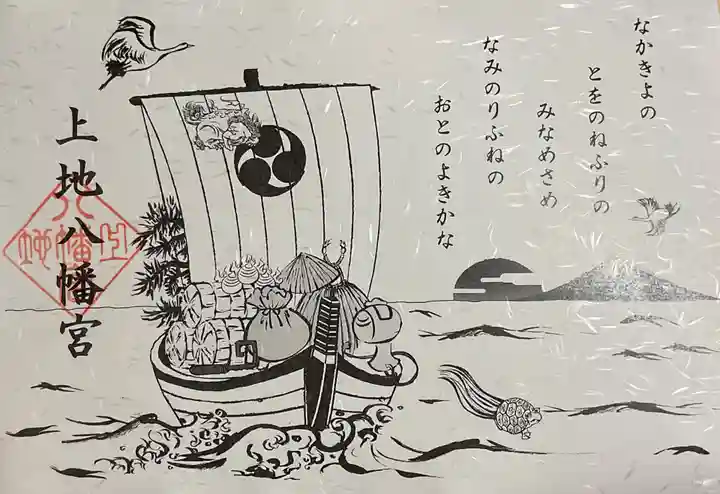 なかきよの
とをのねふりの
みなめさめ
なみのりぶねの
おとのよきかな
上地八幡宮